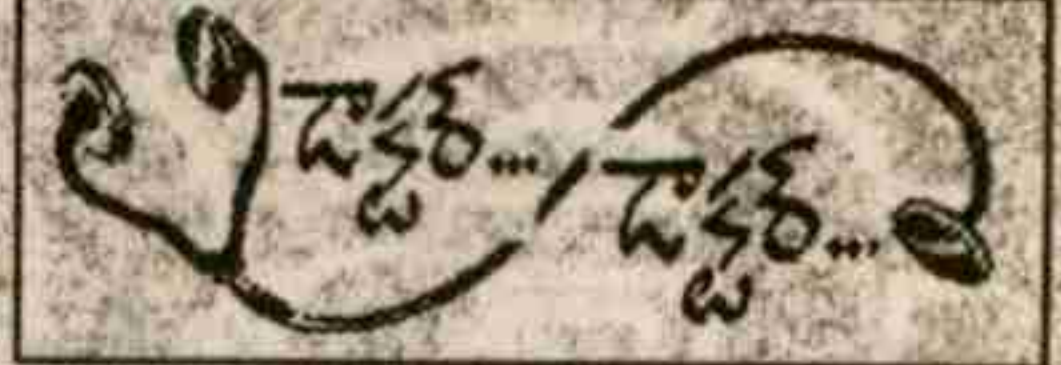 డాక్టర్... డాక్టర్...